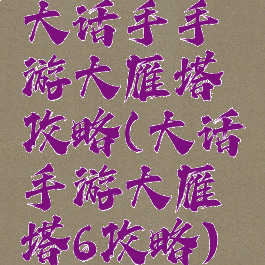 大话手手
游大雁塔
攻略(大话
手游大雁
塔6攻略)